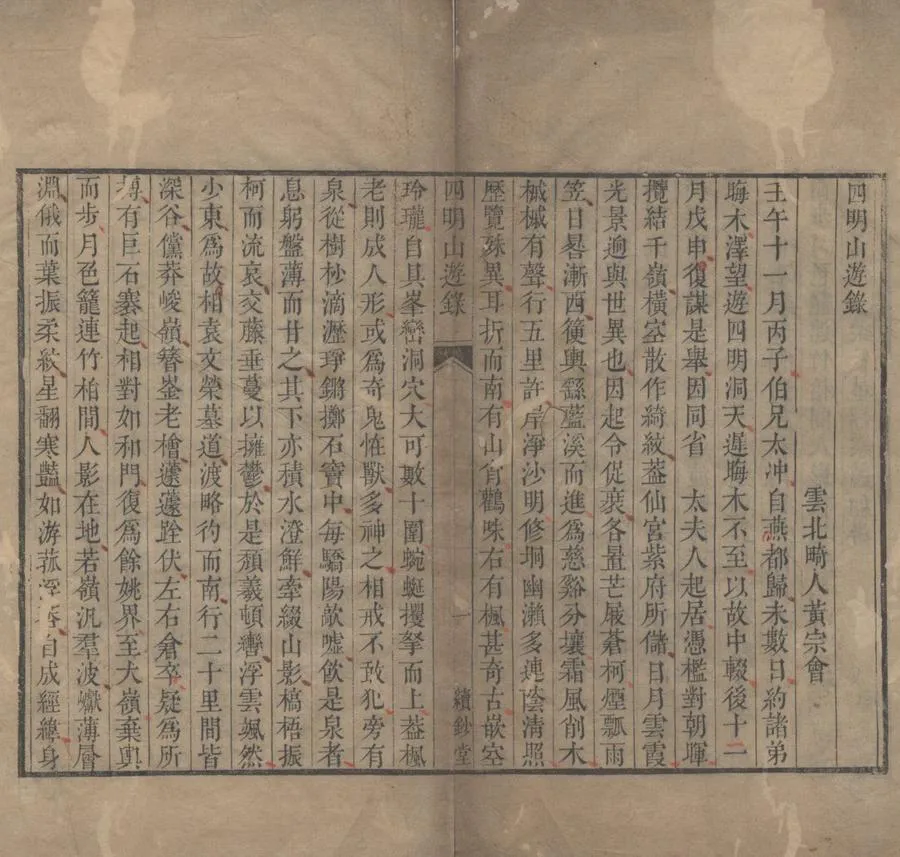 四明山遊錄
雲北畸人黃宗會
壬午十一月丙子伯兄太冲自燕都歸未數日約諸弟
晦木澤望遊四明洞天遲晦木不至以故中輟後十二
月戊申復謀是舉因同省　太夫人起居憑檻對朝暉
攬結千嶺橫空散作綺紋葢仙宮紫府所儲日月雲霞
光景逈與世異也因起令促裝各置芒屐蒼柯煙瓢雨
笠日晷漸西籃輿繇藍溪而進爲慈谿分壤霜風削木
槭槭有聲行五里許岸淨沙明修坰幽瀨多連陰清照
歷覽殊異耳折而南有山肖鸛咮右有楓甚奇古嵌空
四明山遊錄
一
續鈔堂
玲瓏自具峯巒洞穴大可數十圍蜿蜒攫拏而上葢楓
老則成人形或爲奇鬼恠獸多神之相戒不敢犯旁有
泉從樹杪滴瀝琤鏘擲石竇中每驕陽歊噓飲是泉者
息躬盤薄而甘之其下亦積水澄鮮牽綴山影槁梧振
柯而流哀交藤垂蔓以擁鬱於是頹羲頓轡浮雲颯然
少東爲故相袁文榮墓道渡略彴而南行二十里間皆
深谷儻莽峻嶺簪崟老檜蘧蘧跧伏左右倉卒疑爲所
搏有巨石塞起相對如和門復爲餘姚界至大嶺棄輿
而步月色籠連竹柏間人影在地若嶺汎羣波巘薄層
淵俄而葉振柔紋星翻寒豔如游菰浮 自成經緯身